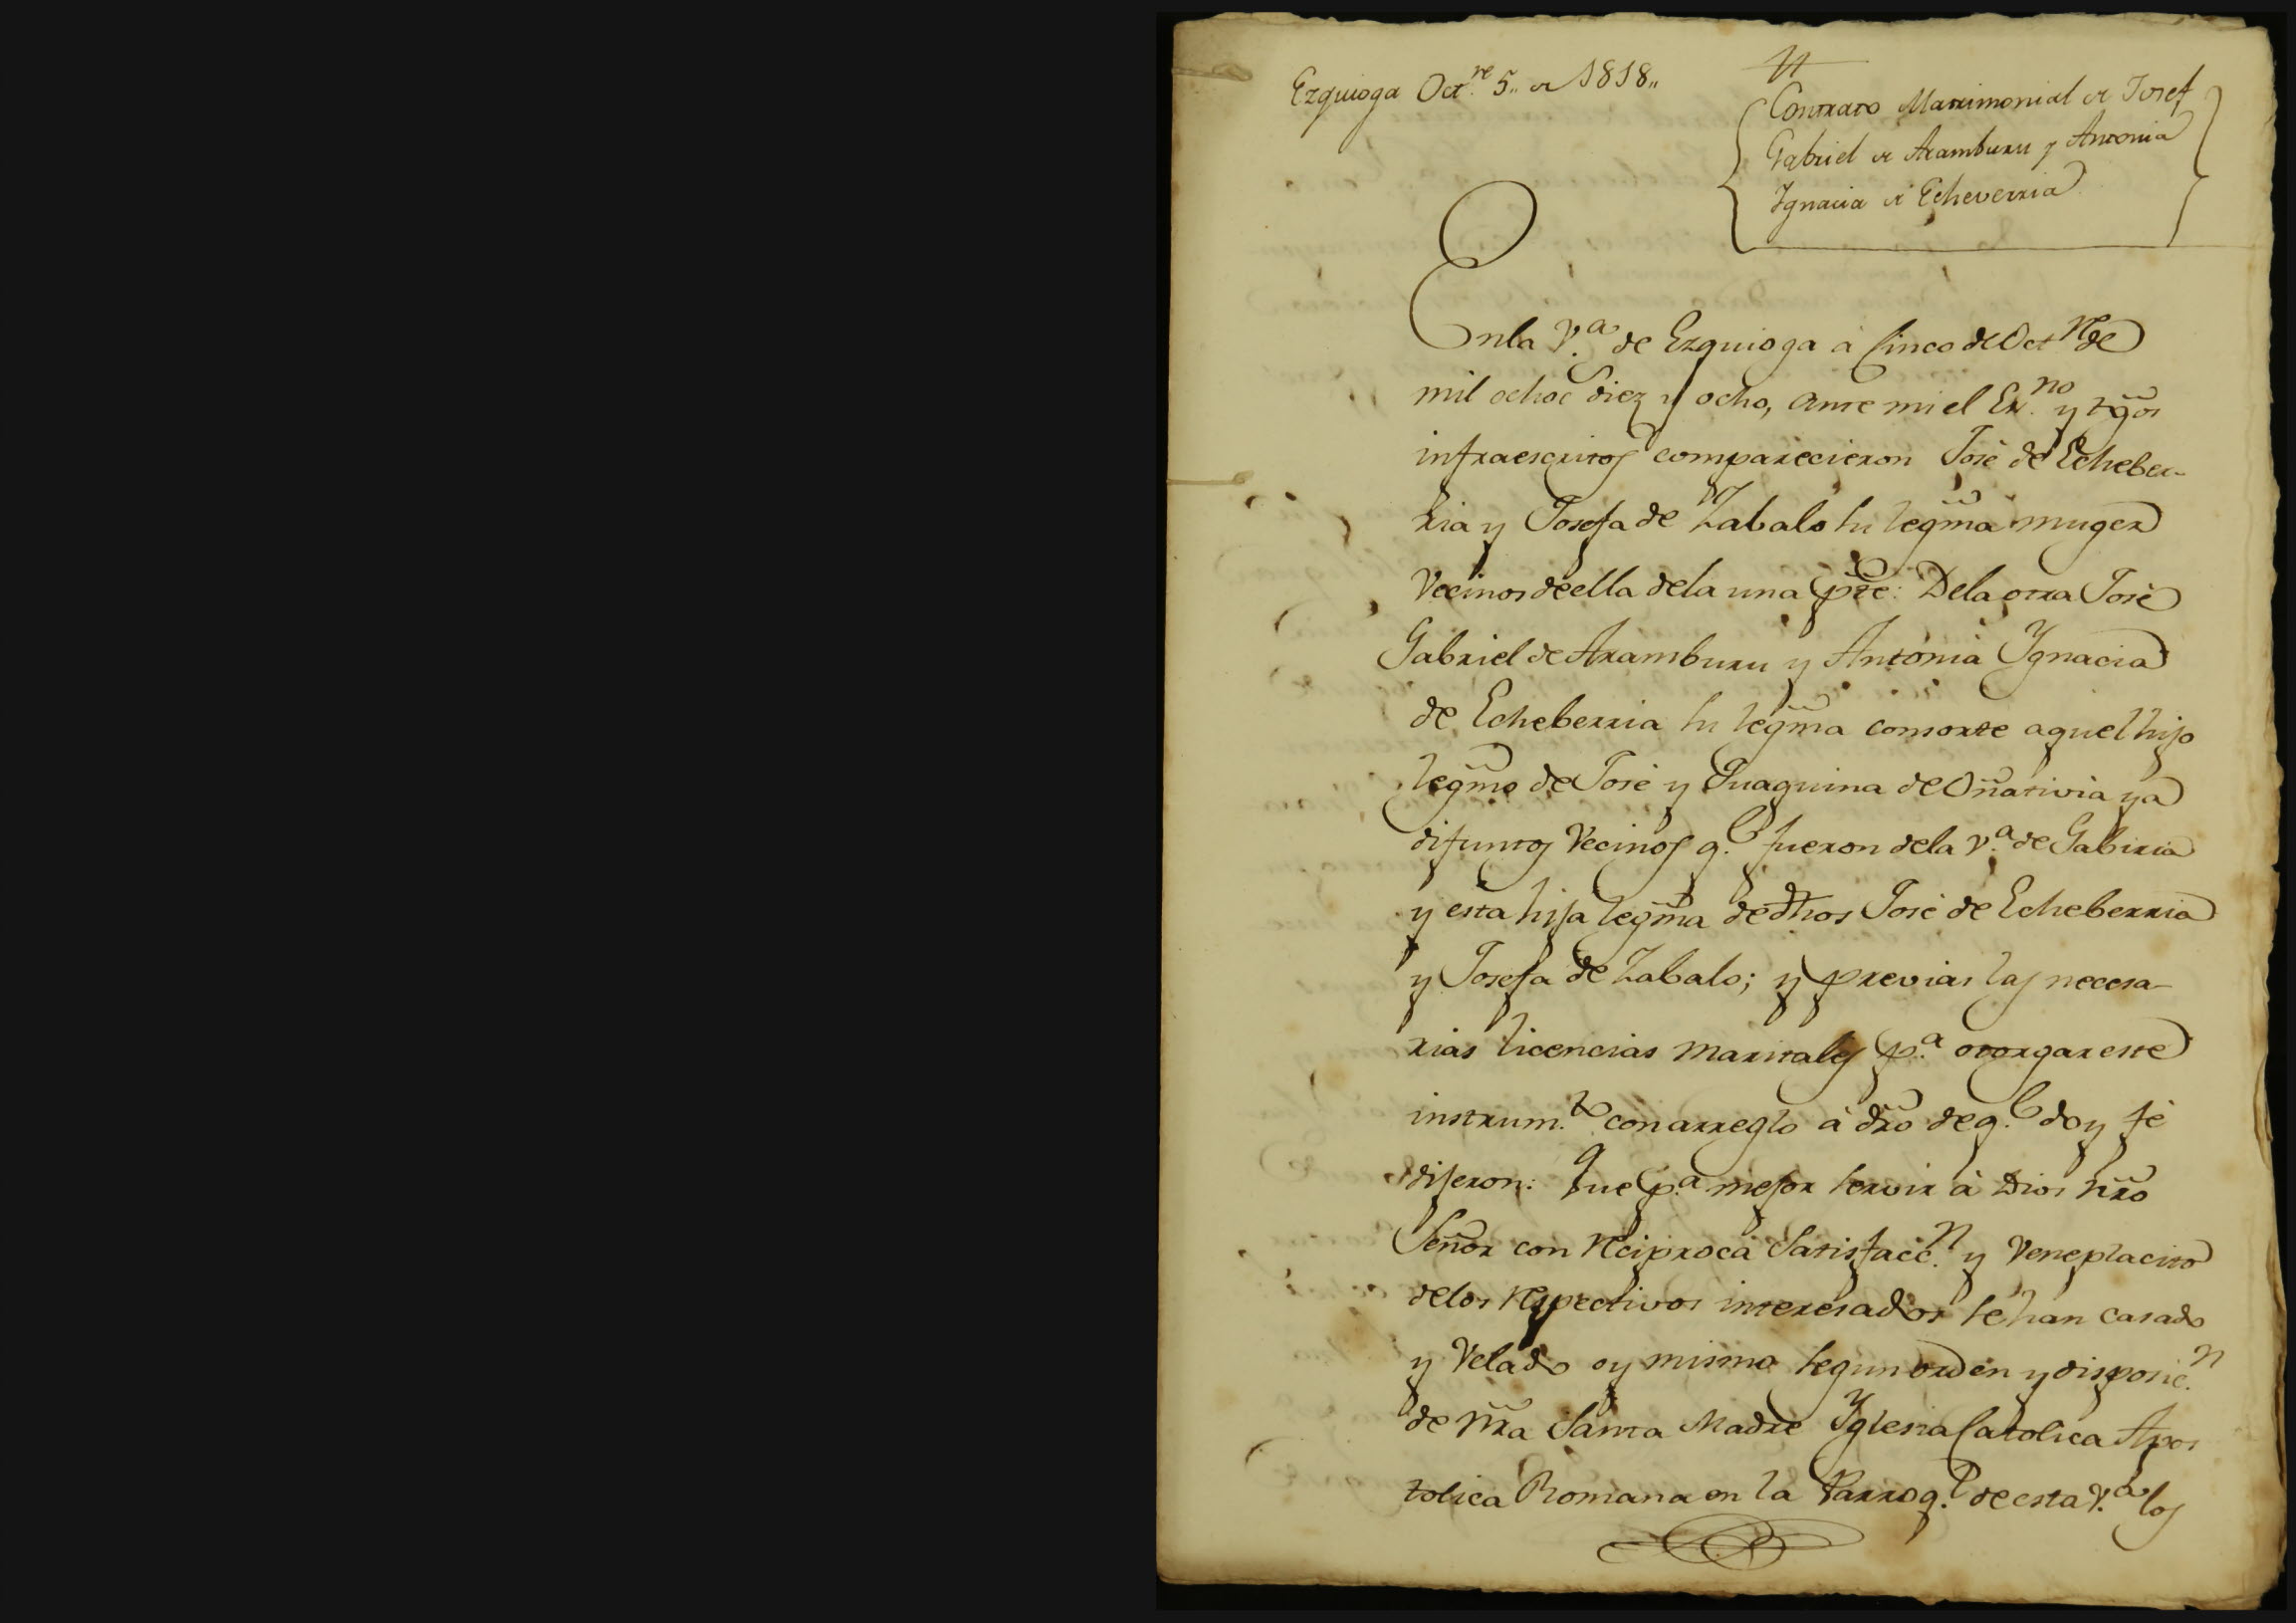 Ezquioga Oct.re 5,, de 1818,,
Contrato Matrimonial de Josef
Gabriel de Aramburu y Antonia
Ygnacia de Echeverria
En la V.a de Ezquioga à Cinco de Oct.re de
mil ochoc.s diez y ocho, ante mi el Es.no y tg̃os
infraescritos comparecieron José de Echeber-
ria y Josefa de Zabalo su legm̃a muger
Vecinos de ella de la una pte: De la otra José
Gabriel de Aramburu y Antonia Ygnacia
de Echeberria su legm̃a consorte aquel hijo
legm̃o de José y Juaquina de Oñativia ya
difuntos Vecinos q.e fueron de la v.a de Gabiria
y esta hija legm̃a de dh̃os José de Echeberria
y Josefa de Zabalo; y previas las necesa-
rias licencias maritales p.a otorgar este
instrum.to con arreglo à dr̃o de q.e doy fé
dijeron: Que p.a mejor servir à Dios nr̃o
Señor con reciproca Satisfacc.n y Veneplacito
de los respectivos interesados se han casado
y Velado oy mismo segun orden y disposic.n
de nr̃a Santa Madre Yglesia Catolica Apos
tolica Romana en la Parroq.l de esta v.a los